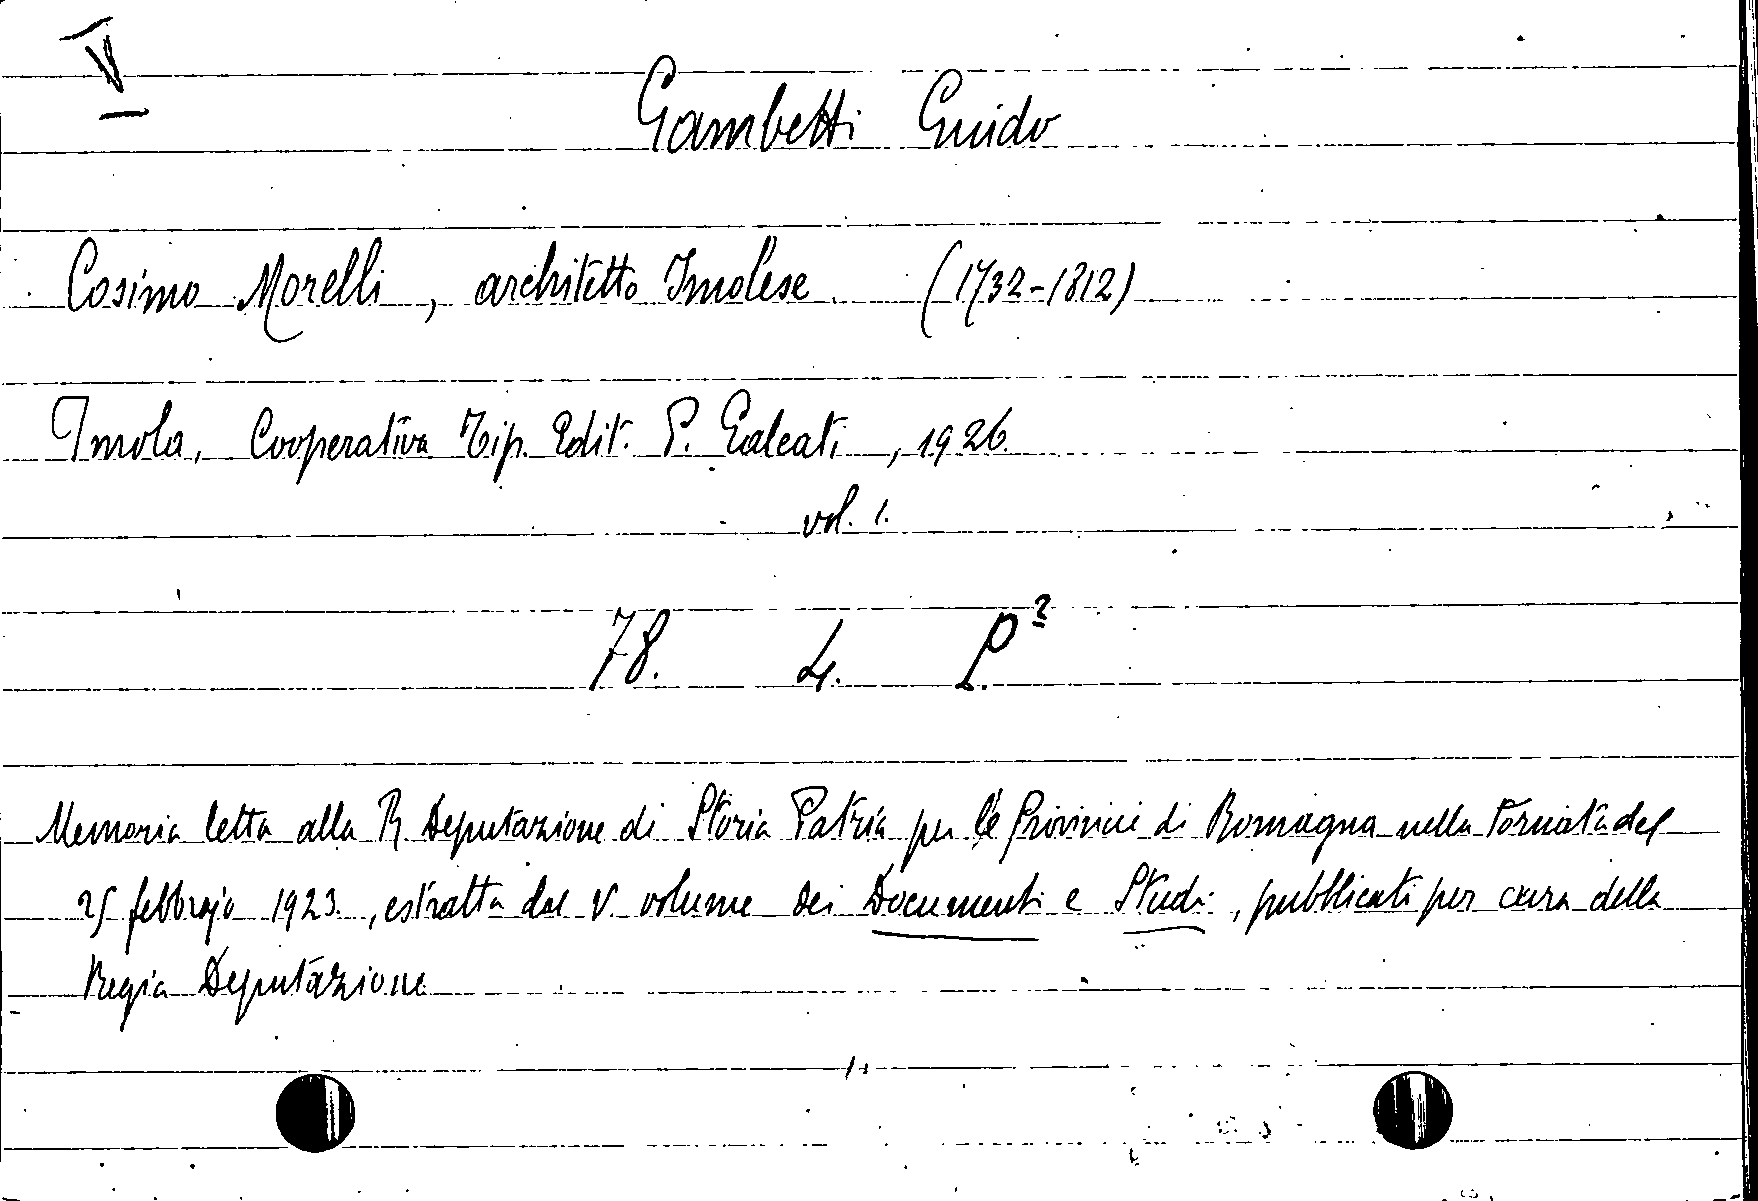 V
Gambetti Guido
Cosimo Morelli, architetto Imolese (1732-1812)
Imola, Cooperativa Tip. Edit. P. Galeati, 1926.
vol. 1.
78. L. P²
Memoria letta alla R. Deputazione di Storia Patria per le Provincie di Romagna nella Tornata del
25 febbrajo 1923, estratta dal V volume dei Documenti e Studi, pubblicati per cura della
Regia Deputazione